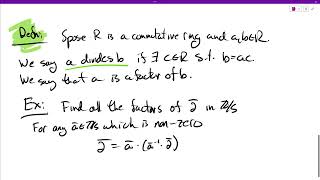 Defn: Spose R is a commutative ring and a,b∈R.
We say a divides b if ∃ c∈R s.t. b=ac.
We say that a is a factor of b.
Ex: Find all the factors of 2̅ in ℤ/5
For any a̅∈ℤ/5 which is non-zero
2̅ = a̅·(a̅⁻¹·2̅)